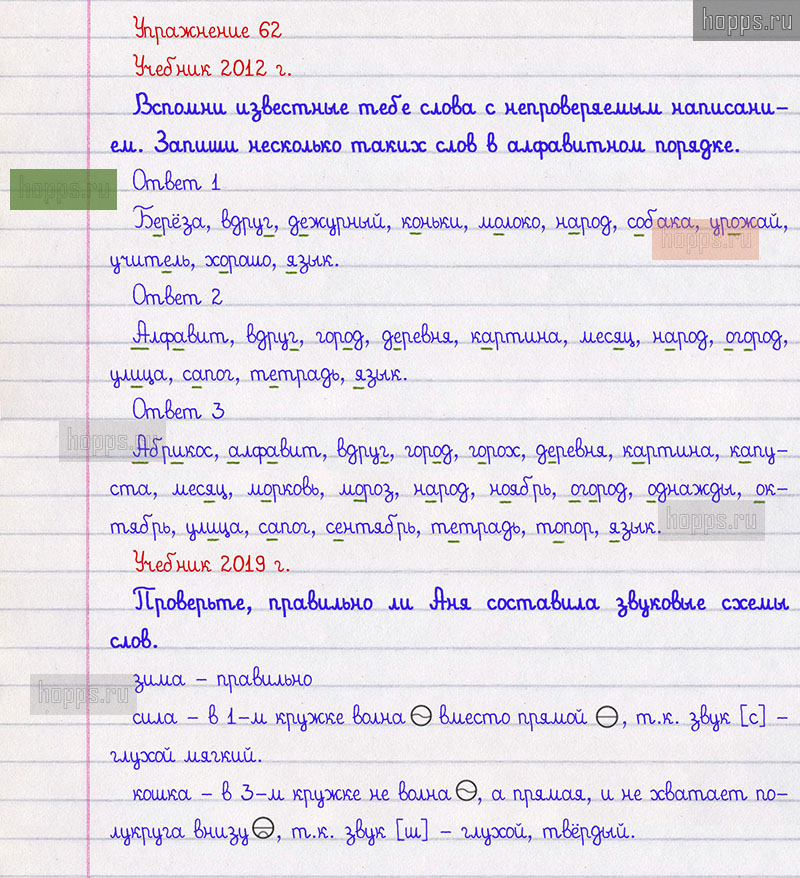 hopps.ru
Упражнение 62
Учебник 2012 г.
Вспомни известные тебе слова с непроверяемым написани-
ем. Запиши несколько таких слов в алфавитном порядке.
hopps.ru
Ответ 1
Берёза, вдруг, дежурный, коньки, молоко, народ, собака, урожай,
hopps.ru
учитель, хорошо, язык.
Ответ 2
Алфавит, вдруг, город, деревня, картина, месяц, народ, огород,
улица, сапог, тетрадь, язык.
Ответ 3
hopps.ru
Абрикос, алфавит, вдруг, город, горох, деревня, картина, капу-
ста, месяц, морковь, мороз, народ, ноябрь, огород, однажды, ок-
тябрь, улица, сапог, сентябрь, тетрадь, топор, язык.
hopps.ru
Учебник 2019 г.
Проверьте, правильно ли Аня составила звуковые схемы
слов.
зима – правильно
hopps.ru
сила – в 1-м кружке волна вместо прямой , т.к. звук [с] –
глухой мягкий.
кошка – в 3-м кружке не волна , а прямая, и не хватает по-
лукруга внизу , т.к. звук [ш] – глухой, твёрдый.